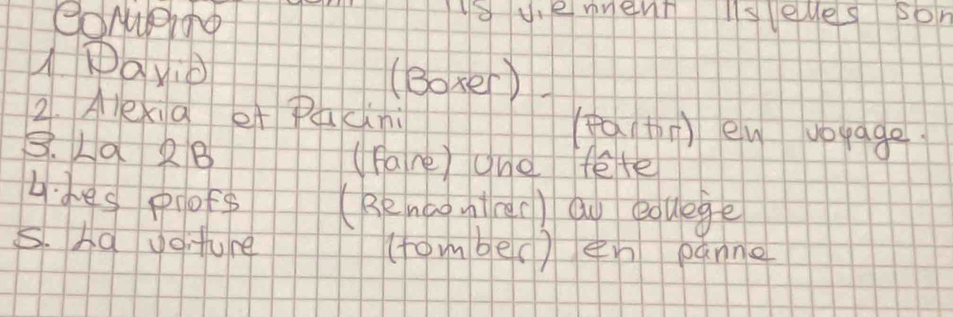 ils viennent ils/elles son
Compino
1. David (Boxer).
2. Alexia et Pacini (Partir) en voyage.
3. La 2B (Faire) une fête
4. Les profs (Rencontrer) au collège
5. La voiture (tomber) en panne